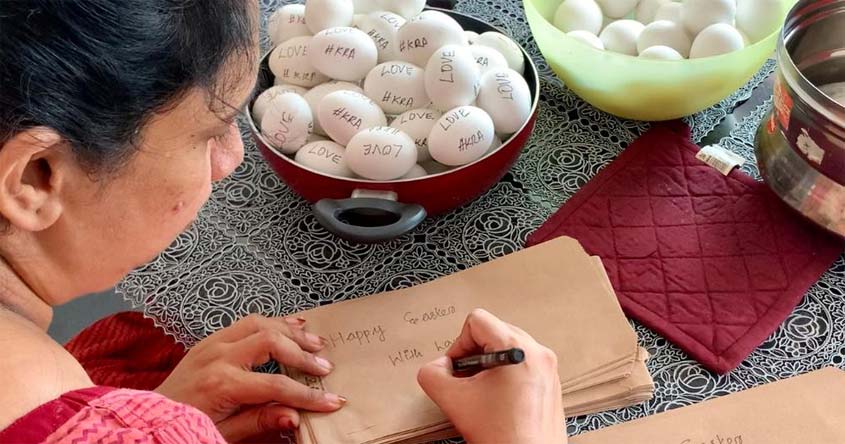 LOVE
#KRA
LOVE
LOVE
#KRA
#KRA
LOVE
LOVE
#KRA
LOVE
LOVE
LOVE
#KRA
LOVE
LOVE
#KRA
LOVE
LOVE
Happy Easter
With
Easter